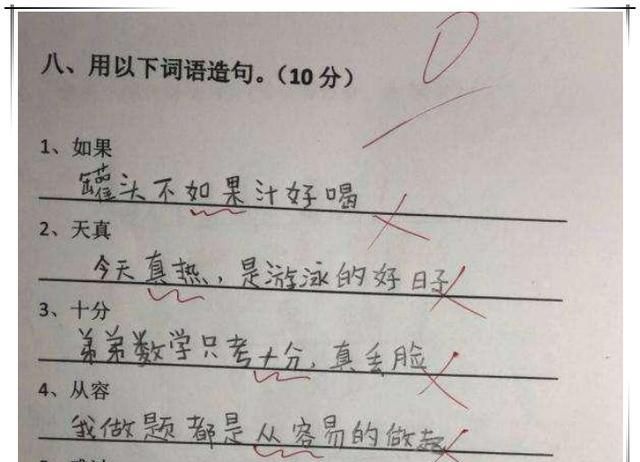 0
八、用以下词语造句。(10分)
1、如果
罐头不如果汁好喝
2、天真
今天真热，是游泳的好日子
3、十分
弟弟数学只考十分，真丢脸
4、从容
我做题都是从容易的做起